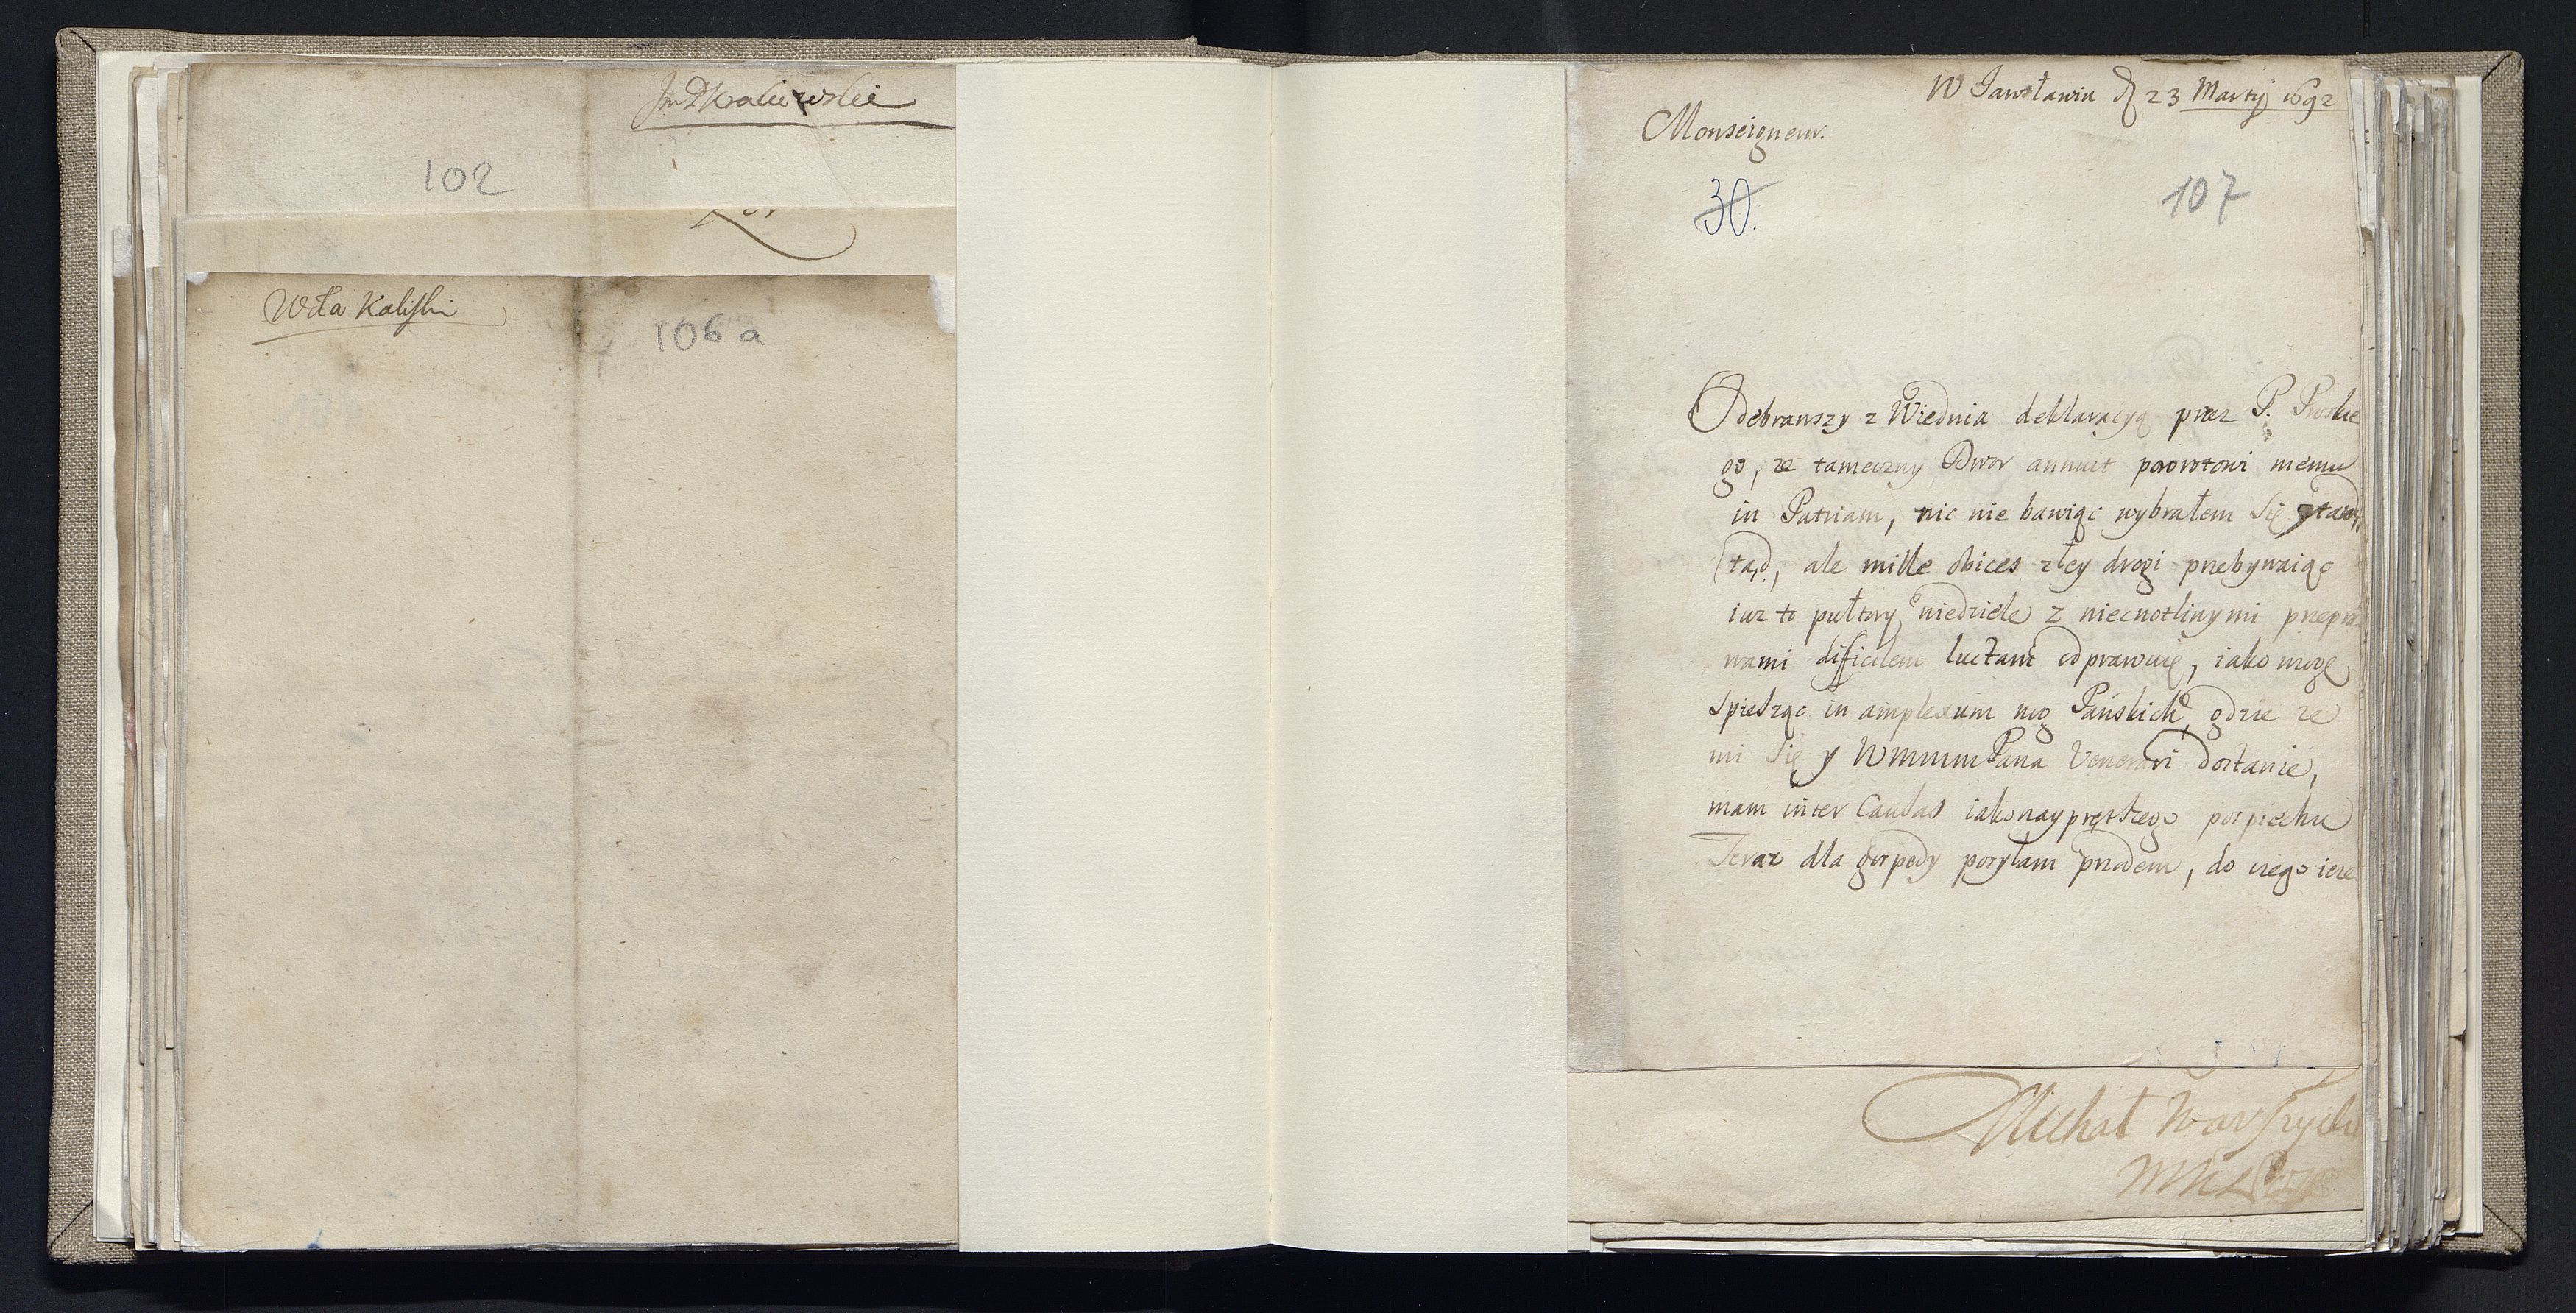 102
Wda Kalisski
106 a
W Jarosławiu d 23 Martij 1692
Monseigneur.
30.
107
Odebrawszy z Wiednia deklaracyą przez P.
go, ze tameczny Dwor annuit powrotowi memu
in Patriam, nic nie bawiąc wybrałem się
tąd, ale mille obices złey drogi przebywaiąc
iuz to pułtory niedziele z niecnotliwymi przepra
wami dificilem luctam odprawuię, iako mogę
spiesząc in amplexum nog Pańskich, gdzie ze
mi się y WmmmPana Venerari dostanie,
mam inter Causas iakonayprętszego pospiechu
Teraz dla gospody posyłam przodem, do czego ieze
Michał Warszycki